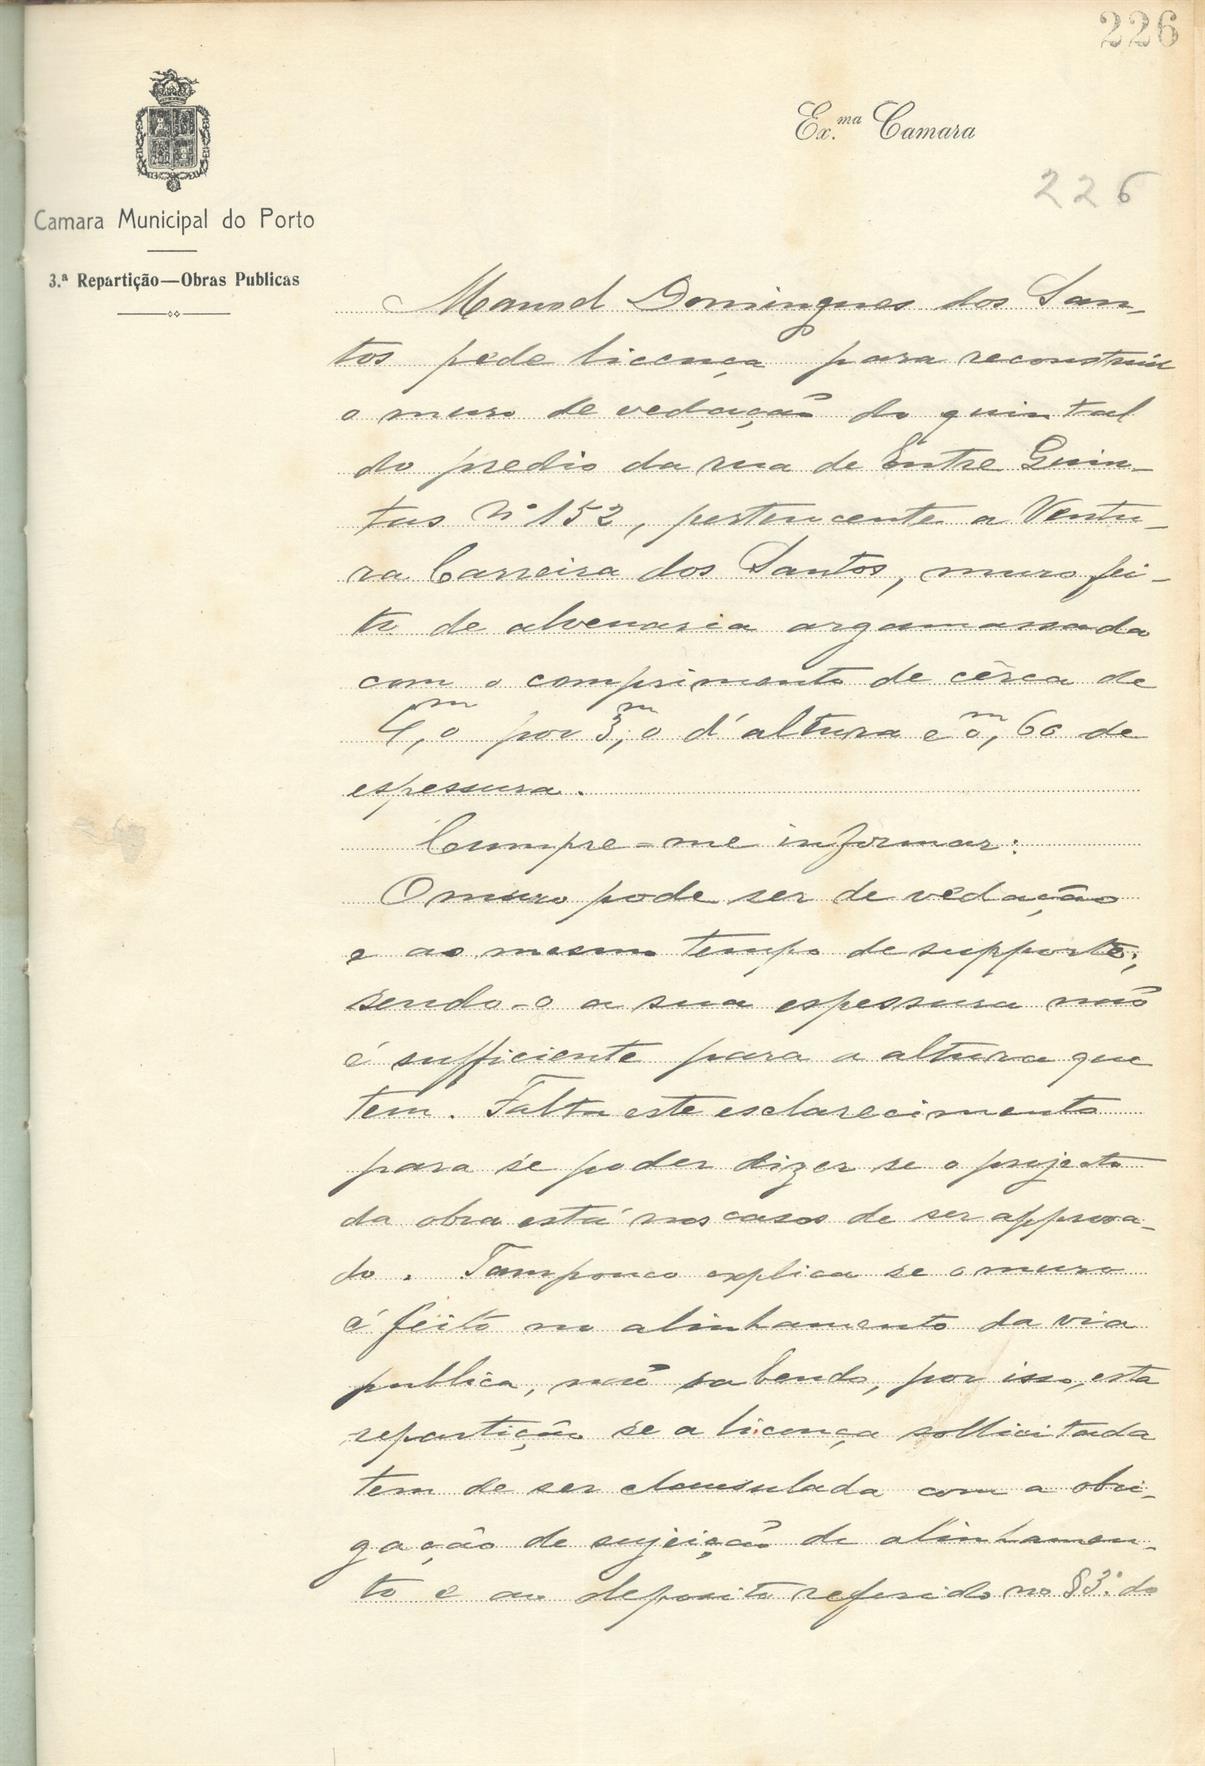 226
Ex.ma Camara
226
Camara Municipal do Porto
3.ª Repartição—Obras Publicas
Manoel Domingues dos San-
tos pede licença para reconstruir
o muro de vedação do quintal
do predio da rua de Entre Quin-
tas Nº 152, pertencente a Ventu-
ra Carreira dos Santos, muro fei-
to de alvenaria argamassada
com o comprimento de cêrca de
4,m0 por 3,m0 d'altura e 0,m60 de
espessura.
Cumpre-me informar:
O muro pode ser de vedação
e ao mesmo tempo de supporte;
sendo-o a sua espessura não
é sufficiente para a altura que
tem. Falta este esclarecimento
para se poder dizer se o projecto
da obra está nos casos de ser approva-
do. Tampouco explica se o muro
é feito no alinhamento da via
publica, não sabendo, por isso, esta
repartição se a licença sollicitada
tem de ser clausulada com a obri-
gação de sujeição de alinhamen-
to e ao deposito referido no § 3.º do